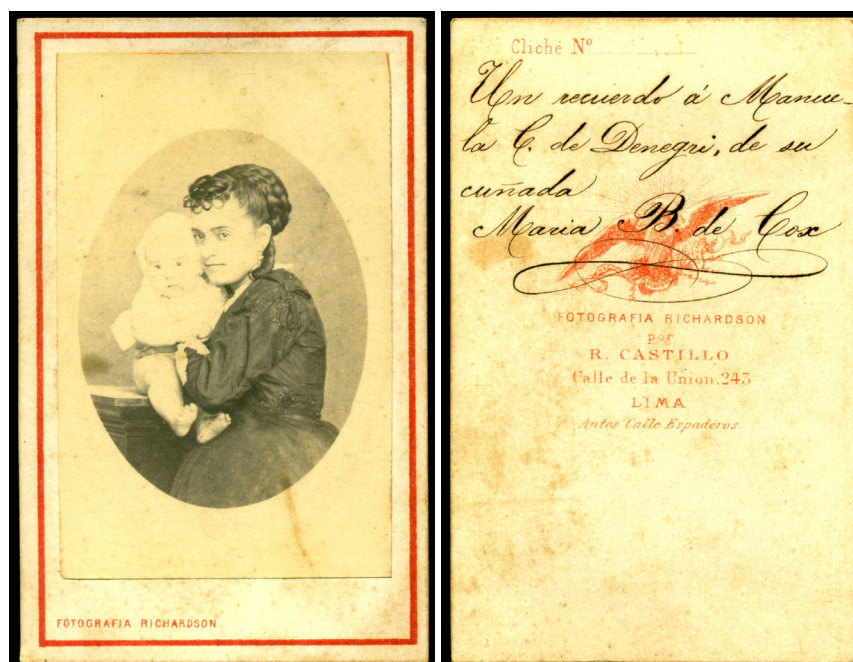 FOTOGRAFIA RICHARDSON
Cliché Nº
Un recuerdo á Manue-
la C. de Denegri, de su
cuñada
Maria B. de Cox
FOTOGRAFIA RICHARDSON
por
R. CASTILLO
Calle de la Union.243
LIMA
Antes Calle Espaderos.